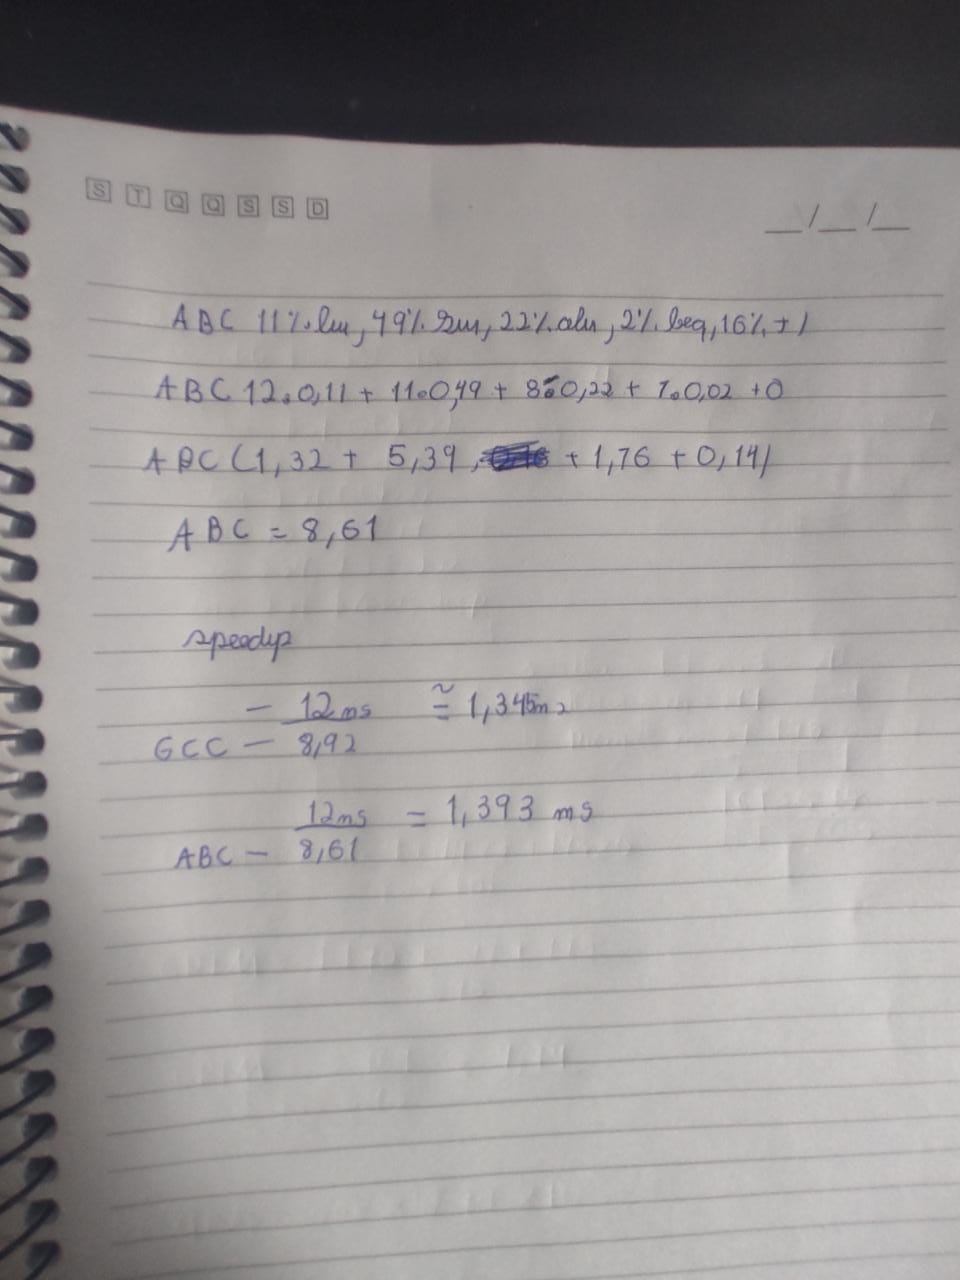 S T Q Q S S D
__/__/__
ABC 11% lw, 49% sw, 22% alu, 2% beq, 16% +1
ABC 12.0,11 + 11.0,49 + 8.0,22 + 7.0,02 +0
ABC (1,32 + 5,39 + 1,76 + 0,14)
ABC = 8,61
speedup
- 12ms ≅ 1,345ms
GCC - 8,92
12ms = 1,393 ms
ABC - 8,61